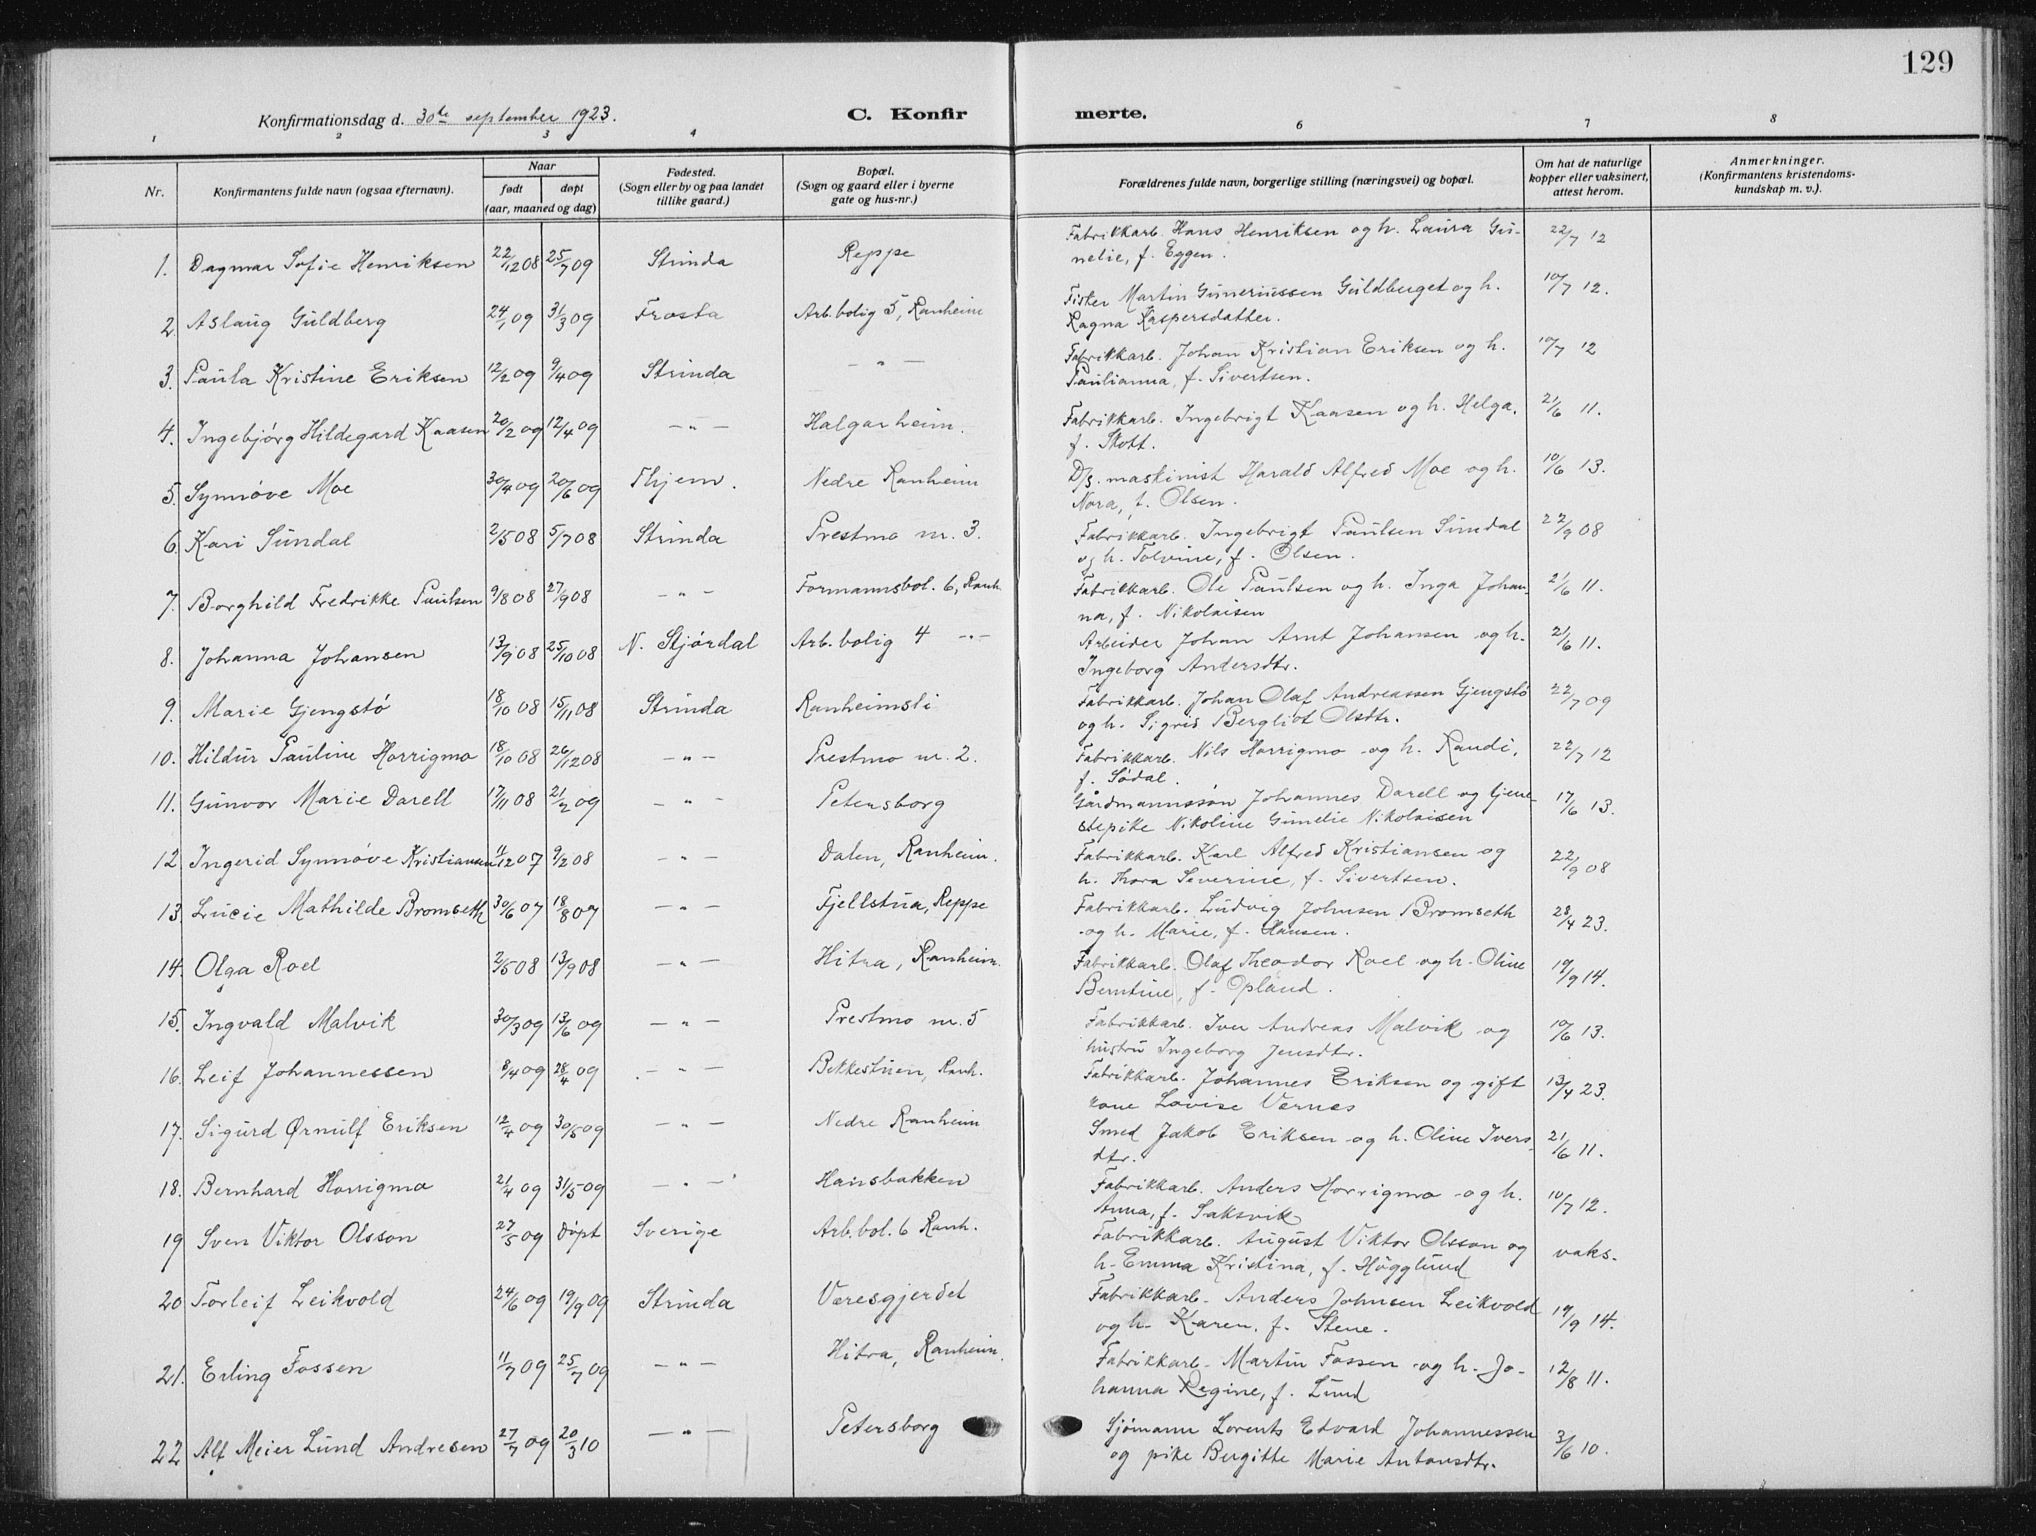 129
Konfirmationsdag d. 30te september 1923.
C. Konfir merte.
1 2 3 4 6 7 8
Nr. Konfirmantens fulde navn (ogsaa efternavn). Naar født døpt (aar, maaned og dag) Fødested. (Sogn eller by og paa landet tillike gaard.) Bopæl. (Sogn og gaard eller i byerne gate og hus-nr.) Forældrenes fulde navn, borgerlige stilling (næringsvei) og bopæl. Om hat de naturlige kopper eller vaksinert, attest herom. Anmerkninger. (Konfirmantens kristendoms-kundskap m. v.).
1. Dagmar Sofie Henriksen 22/12 08 25/7 09 Strinda Reppe Fabrikkarb. Hans Henriksen og h. Laura Gu- 22/7 12
nelie, f. Eggen.
2. Aslaug Guldberg 24/1 09 31/3 09 Frosta Arb.bolig 5, Ranheim Fisker Martin Guneriussen Guldberget og h. 10/7 12.
Ragna Kaspersdatter.
3. Paula Kristine Eriksen 12/2 09 9/4 09 Strinda — " — Fabrikkarb. Johan Kristian Eriksen og h. 10/7 12
Paulianna, f. Sivertsen.
4. Ingebjørg Hildegard Kaasen 20/2 09 12/4 09 — " — Halgarheim. Fabrikkarb. Ingebrigt Kaasen og h. Helga, 21/6 11.
f. Skott.
5. Synnøve Moe 30/4 09 20/6 09 Thjem. Nedre Ranheim D/s. maskinist Harald Alfred Moe og h. 10/6 13.
Nora, f. Olsen.
6. Kari Sundal 2/5 08 5/7 08 Strinda Prestmo nr. 3. Fabrikkarb. Ingebrigt Paulsen Sundal 22/9 08
og h. Tolvine, f. Olsen.
7. Borghild Fredrikke Paulsen 9/8 08 27/9 08 — " — Formannsbol. 6, Ranh. Fabrikkarb. Ole Paulsen og h. Inga Johan- 21/6 11.
na, f. Nikolaisen
8. Johanna Johansen 13/9 08 25/10 08 N. Stjørdal Arb.bolig 4 — " — Arbeider Johan Arnt Johansen og h. 21/6 11.
Ingeborg Andersdtr.
9. Marie Gjengstø 18/10 08 15/11 08 Strinda Ranheimsli Fabrikkarb. Johan Olaf Andreassen Gjengstø 22/7 09
og h. Sigrid Bergliot Olsdtr.
10. Hildur Pauline Horrigmo 18/10 08 26/12 08 — " — Prestmo nr. 2. Fabrikkarb. Nils Horrigmo og h. Randi, 22/7 12
f. Sødal.
11. Gunvor Marie Darell 17/11 08 21/2 09 — " — Petersborg Gårdmannssøn Johannes Darell og tjene- 17/6 13.
stepike Nikoline Gunelie Nikolaisen
12 Ingerid Synnøve Kristiansen 11/12 07 9/2 08 — " — Dalen, Ranheim. Fabrikkarb. Karl Alfred Kristiansen og 22/9 08
h. Thora Severine, f. Sivertsen.
13 Lucie Mathilde Bromseth 30/6 07 18/8 07 — " — Fjellstua, Reppe Fabrikkarb. Ludvig Johnsen Bromseth 28/4 23.
og h. Marie, f. Hansen.
14. Olga Roel 2/5 08 13/9 08 — " — Hitra, Ranheim. Fabrikkarb. Olaf Theodor Roel og h. Oline 19/9 14.
Berntine, f. Opland.
15. Ingvald Malvik 30/3 09 13/6 09 — " — Prestmo nr. 5 Fabrikkarb. Iver Andreas Malvik og 10/6 13.
hustru Ingeborg Jensdtr.
16. Leif Johannessen 8/4 09 28/4 09 — " — Bekkestuen, Ranh. Fabrikkarb. Johannes Eriksen og gift 13/4 23.
kone Lovise Vernes
17. Sigurd Ørnulf Eriksen 12/4 09 30/5 09 — " — Nedre Ranheim Smed Jakob Eriksen og h. Oline Ivers- 21/6 11.
dtr.
18. Bernhard Horrigmo 21/4 09 31/5 09 — " — Hansbakken Fabrikkarb. Anders Horrigmo og h. 10/7 12.
Anna, f. Saksvik
19 Sven Viktor Olsson 27/5 09 døpt Sverige Arb.bol. 6 Ranh. Fabrikkarb. August Viktor Olsson og vaks.
h. Emma Kristina, f. Högglund
20 Torleif Leikvold 24/6 09 19/9 09 Strinda Væresgjerdet Fabrikkarb. Anders Johnsen Leikvold 19/9 14.
og h. Karen, f. Stene.
21. Erling Fossen 11/7 09 25/7 09 — " — Hitra, Ranheim. Fabrikkarb. Martin Fossen og h. Jo- 12/8 11.
hanna Regine, f. Lund
22 Alf Meier Lund Andresen 27/7 09 20/3 10 — " — Petersborg Sjømann Lorents Edvard Johannessen 3/6 10.
og pike Bergitte Marie Antonsdtr.